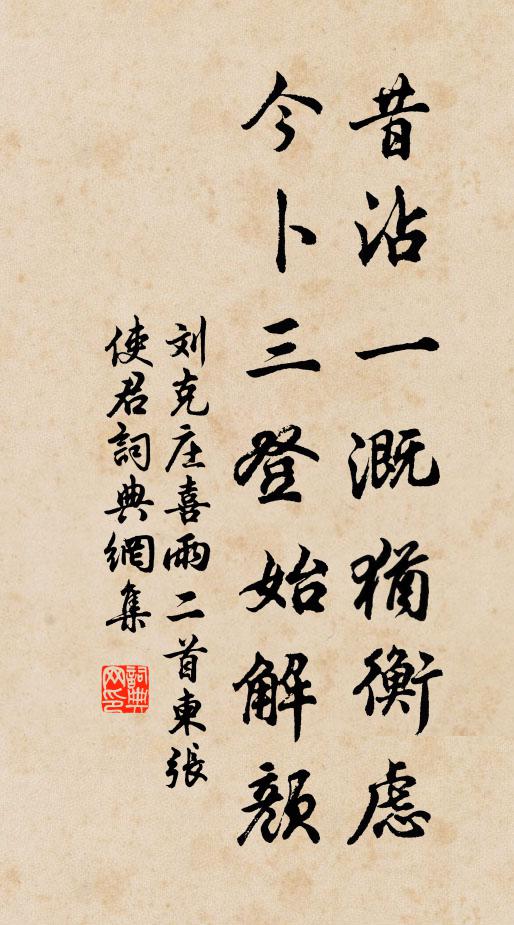 昔沾一溉猶衡慮
今卜三登始解顏
刘克庄喜雨二首東張
使君詞典網集
詞典网印